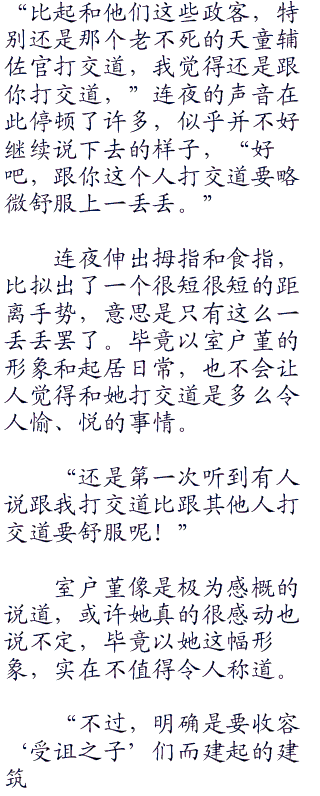 “比起和他们这些政客，特
别还是那个老不死的天童辅
佐官打交道，我觉得还是跟
你打交道，”连夜的声音在
此停顿了许多，似乎并不好
继续说下去的样子，“好
吧，跟你这个人打交道要略
微舒服上一丢丢。”
连夜伸出拇指和食指，
比拟出了一个很短很短的距
离手势，意思是只有这么一
丢丢罢了。毕竟以室户堇的
形象和起居日常，也不会让
人觉得和她打交道是多么令
人愉、悦的事情。
“还是第一次听到有人
说跟我打交道比跟其他人打
交道要舒服呢！”
室户堇像是极为感概的
说道，或许她真的很感动也
说不定，毕竟以她这幅形
象，实在不值得令人称道。
“不过，明确是要收容
‘受诅之子’们而建起的建
筑